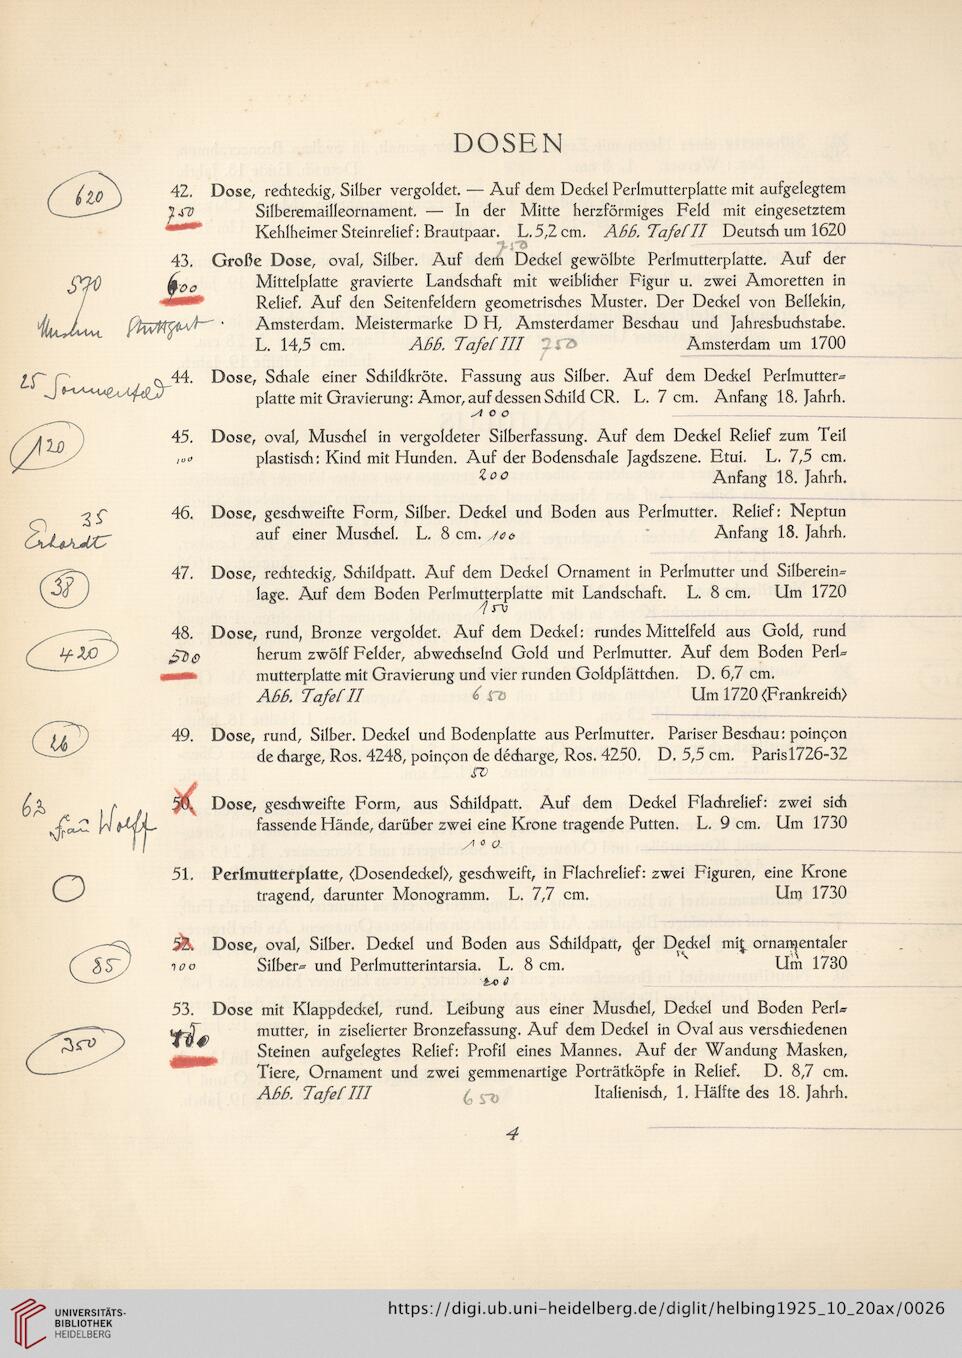 DOSEN
620
42. Dose, rechteckig, Silber vergoldet. — Auf dem Deckel Perlmutterplatte mit aufgelegtem
750 Silberemailleornament. — In der Mitte herzförmiges Feld mit eingesetztem
Kehlheimer Steinrelief: Brautpaar. L. 5,2 cm. Abb. Tafel II Deutsch um 1620
750
43. Große Dose, oval, Silber. Auf dem Deckel gewölbte Perlmutterplatte. Auf der
570 600 Mittelplatte gravierte Landschaft mit weiblicher Figur u. zwei Amoretten in
Relief. Auf den Seitenfeldern geometrisches Muster. Der Deckel von Bellekin,
Museum Stuttgart Amsterdam. Meistermarke D H, Amsterdamer Beschau und Jahresbuchstabe.
L. 14,5 cm. Abb. Tafel III 750 Amsterdam um 1700
25 Sonnenfeld 44. Dose, Schale einer Schildkröte. Fassung aus Silber. Auf dem Deckel Perlmutter=
platte mit Gravierung: Amor, auf dessen Schild CR. L. 7 cm. Anfang 18. Jahrh.
100
120 45. Dose, oval, Muschel in vergoldeter Silberfassung. Auf dem Deckel Relief zum Teil
100 plastisch: Kind mit Hunden. Auf der Bodenschale Jagdszene. Etui. L. 7,5 cm.
200 Anfang 18. Jahrh.
35 46. Dose, geschweifte Form, Silber. Deckel und Boden aus Perlmutter. Relief: Neptun
Erhardt auf einer Muschel. L. 8 cm. 100 Anfang 18. Jahrh.
38 47. Dose, rechteckig, Schildpatt. Auf dem Deckel Ornament in Perlmutter und Silberein=
lage. Auf dem Boden Perlmutterplatte mit Landschaft. L. 8 cm. Um 1720
150
48. Dose, rund, Bronze vergoldet. Auf dem Deckel: rundes Mittelfeld aus Gold, rund
420 500 herum zwölf Felder, abwechselnd Gold und Perlmutter. Auf dem Boden Perl=
mutterplatte mit Gravierung und vier runden Goldplättchen. D. 6,7 cm.
Abb. Tafel II 650 Um 1720 (Frankreich)
26 49. Dose, rund, Silber. Deckel und Bodenplatte aus Perlmutter. Pariser Beschau: poinçon
de charge, Ros. 4248, poinçon de décharge, Ros. 4250. D. 5,5 cm. Paris 1726-32
50
63 50. Dose, geschweifte Form, aus Schildpatt. Auf dem Deckel Flachrelief: zwei sich
Frau Wolff fassende Hände, darüber zwei eine Krone tragende Putten. L. 9 cm. Um 1730
100
51. Perlmutterplatte, (Dosendeckel), geschweift, in Flachrelief: zwei Figuren, eine Krone
tragend, darunter Monogramm. L. 7,7 cm. Um 1730
52. Dose, oval, Silber. Deckel und Boden aus Schildpatt, der Deckel mit ornamentaler
85 100 Silber= und Perlmutterintarsia. L. 8 cm. Um 1730
200
53. Dose mit Klappdeckel, rund. Leibung aus einer Muschel, Deckel und Boden Perl=
350 mutter, in ziselierter Bronzefassung. Auf dem Deckel in Oval aus verschiedenen
Steinen aufgelegtes Relief: Profil eines Mannes. Auf der Wandung Masken,
Tiere, Ornament und zwei gemmenartige Porträtköpfe in Relief. D. 8,7 cm.
Abb. Tafel III 650 Italienisch, 1. Hälfte des 18. Jahrh.
4
UNIVERSITÄTS-
BIBLIOTHEK
HEIDELBERG
https://digi.ub.uni-heidelberg.de/diglit/helbing1925_10_20ax/0026